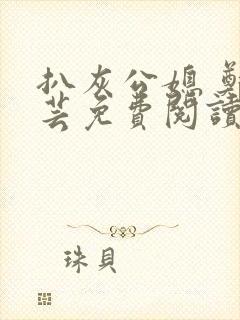 扒灰公媳
芸免費閱讀
珠貝